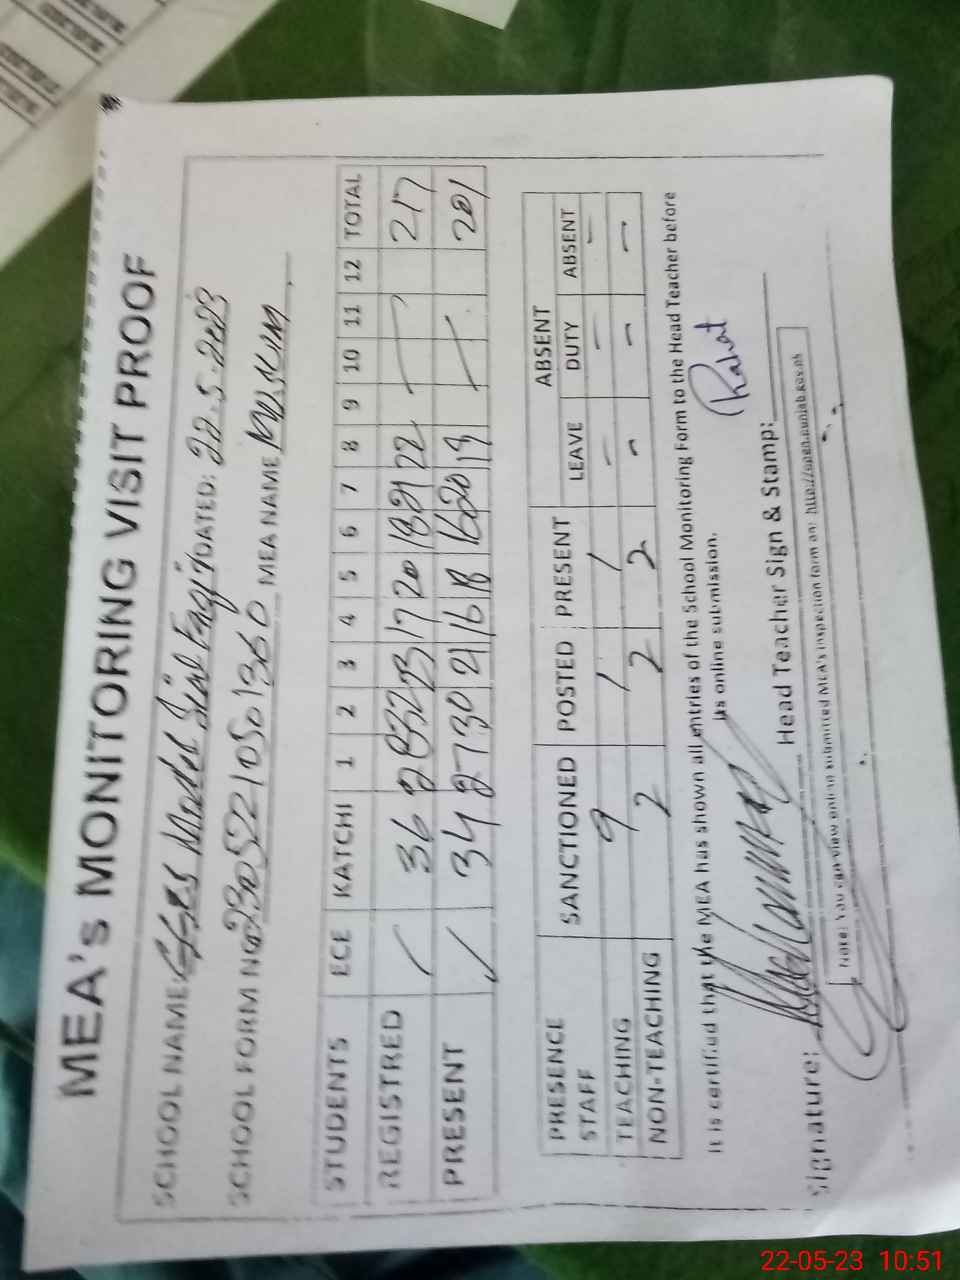 MEA's MONITORING VISIT PROOF
SCHOOL NAME: Model DATED: 22.5.2023
SCHOOL FORM NO MEA NAME
STUDENTS ECE KATCHI 1 2 3 4 5 6 7 8 9 10 11 12 TOTAL
REGISTRED 36 28 32 23 17 20 18 21 22 217
PRESENT 34 27 30 21 16 18 16 20 19 201
PRESENCE STAFF SANCTIONED POSTED PRESENT ABSENT
LEAVE DUTY ABSENT
TEACHING 9 1 1 - - -
NON-TEACHING 2 2 2 - - -
It is certified that the MEA has shown all entries of the School Monitoring Form to the Head Teacher before
its online submission.
Signature: Head Teacher Sign & Stamp:
Note: You can view online submitted MEA's inspection form on: http://open.punjab.gov.pk
22-05-23 10:51